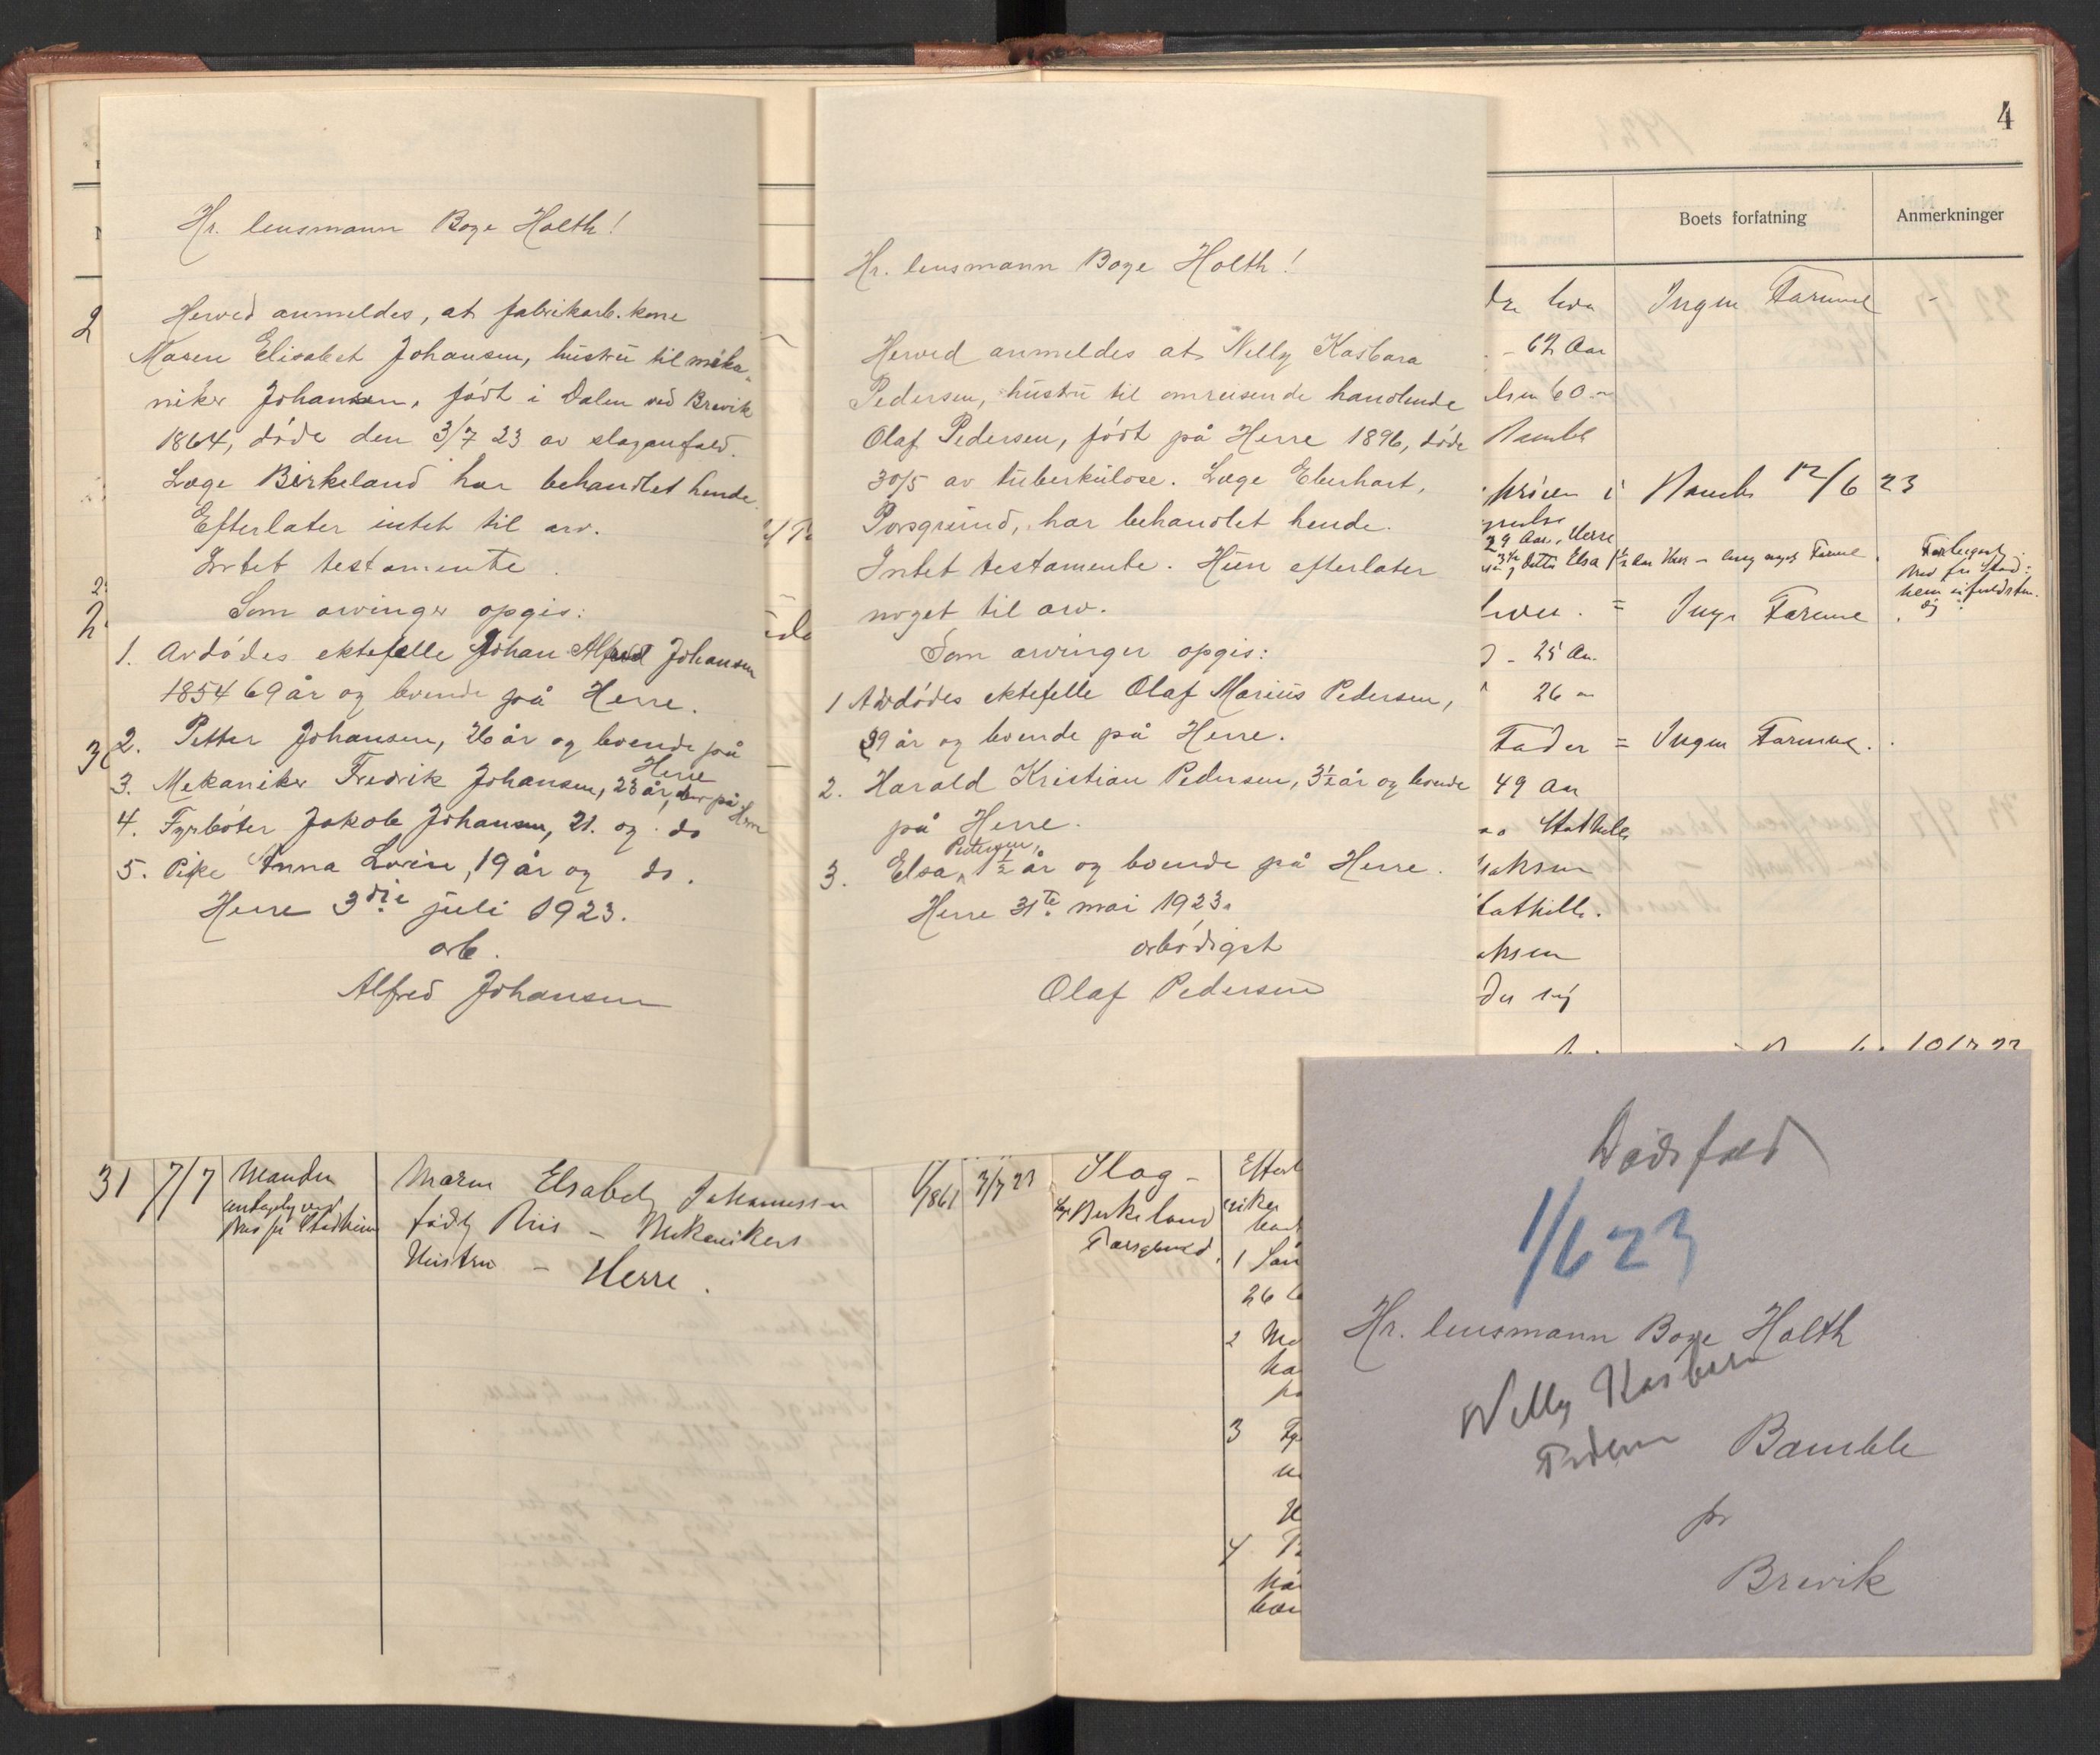 Hr. lensmann Boye Holth!
Herved anmeldes, at fabrikarb. kone
Maren Elisabet Johansen, hustru til meka-
niker Johansen, født i Dalen ved Brevik
1864, døde den 3/7 23 av slaganfald.
Læge Birkeland har behandlet hende.
Efterlater intet til arv.
Intet testamente.
Som arvinger opgis:
1. Avdødes ektefelle Johan Alfred Johansen
1854 69 år og boende på Herre.
2. Petter Johansen, 26 år og boende på
Herre
3. Mekaniker Fredrik Johansen, 23 år, på Herre
4. Fyrbøter Jakob Johansen, 21. og do
5. Pike Anna Lovise, 19 år og do.
Herre 3die juli 1923.
arb.
Alfred Johansen
Hr. lensmann Boye Holth!
Herved anmeldes at Nelly Kasbara
Pedersen, hustru til omreisende handlende
Olaf Pedersen, født på Herre 1896, døde
30/5 av tuberkulose. Læge Eberhart,
Porsgrund, har behandlet hende.
Intet testamente. Hun efterlater
noget til arv.
Som arvinger opgis:
1 Avdødes ektefelle Olaf Marius Pedersen,
29 år og boende på Herre.
2. Harald Kristian Pedersen, 3½ år og boende
på Herre.
Pedersen,
3. Elsa 1½ år og boende på Herre.
Herre 31te mai 1923.
ærbødigst
Olaf Pedersen
4
Boets forfatning
Anmerkninger
Ingen Formue -
- 62 Aar
60
Bamble
Bamble 12/6 23
29 Aar, Herre
= Inge Formue
- 25 Aar
26
Fader = Ingen Formue.
49 Aar
Stathelle
Stathelle.
31 7/7 Manden
Maren Elsabeth Johannessen
født Riis - Mekanikers
Hustru - Herre.
3/7 23
Slag -
Birkeland
Porsgrund.
Dødsfald
1/6 23
Hr. lensmann Boye Holth
Nelly Kasbara
Pedersen
Bamble
pr
Brevik